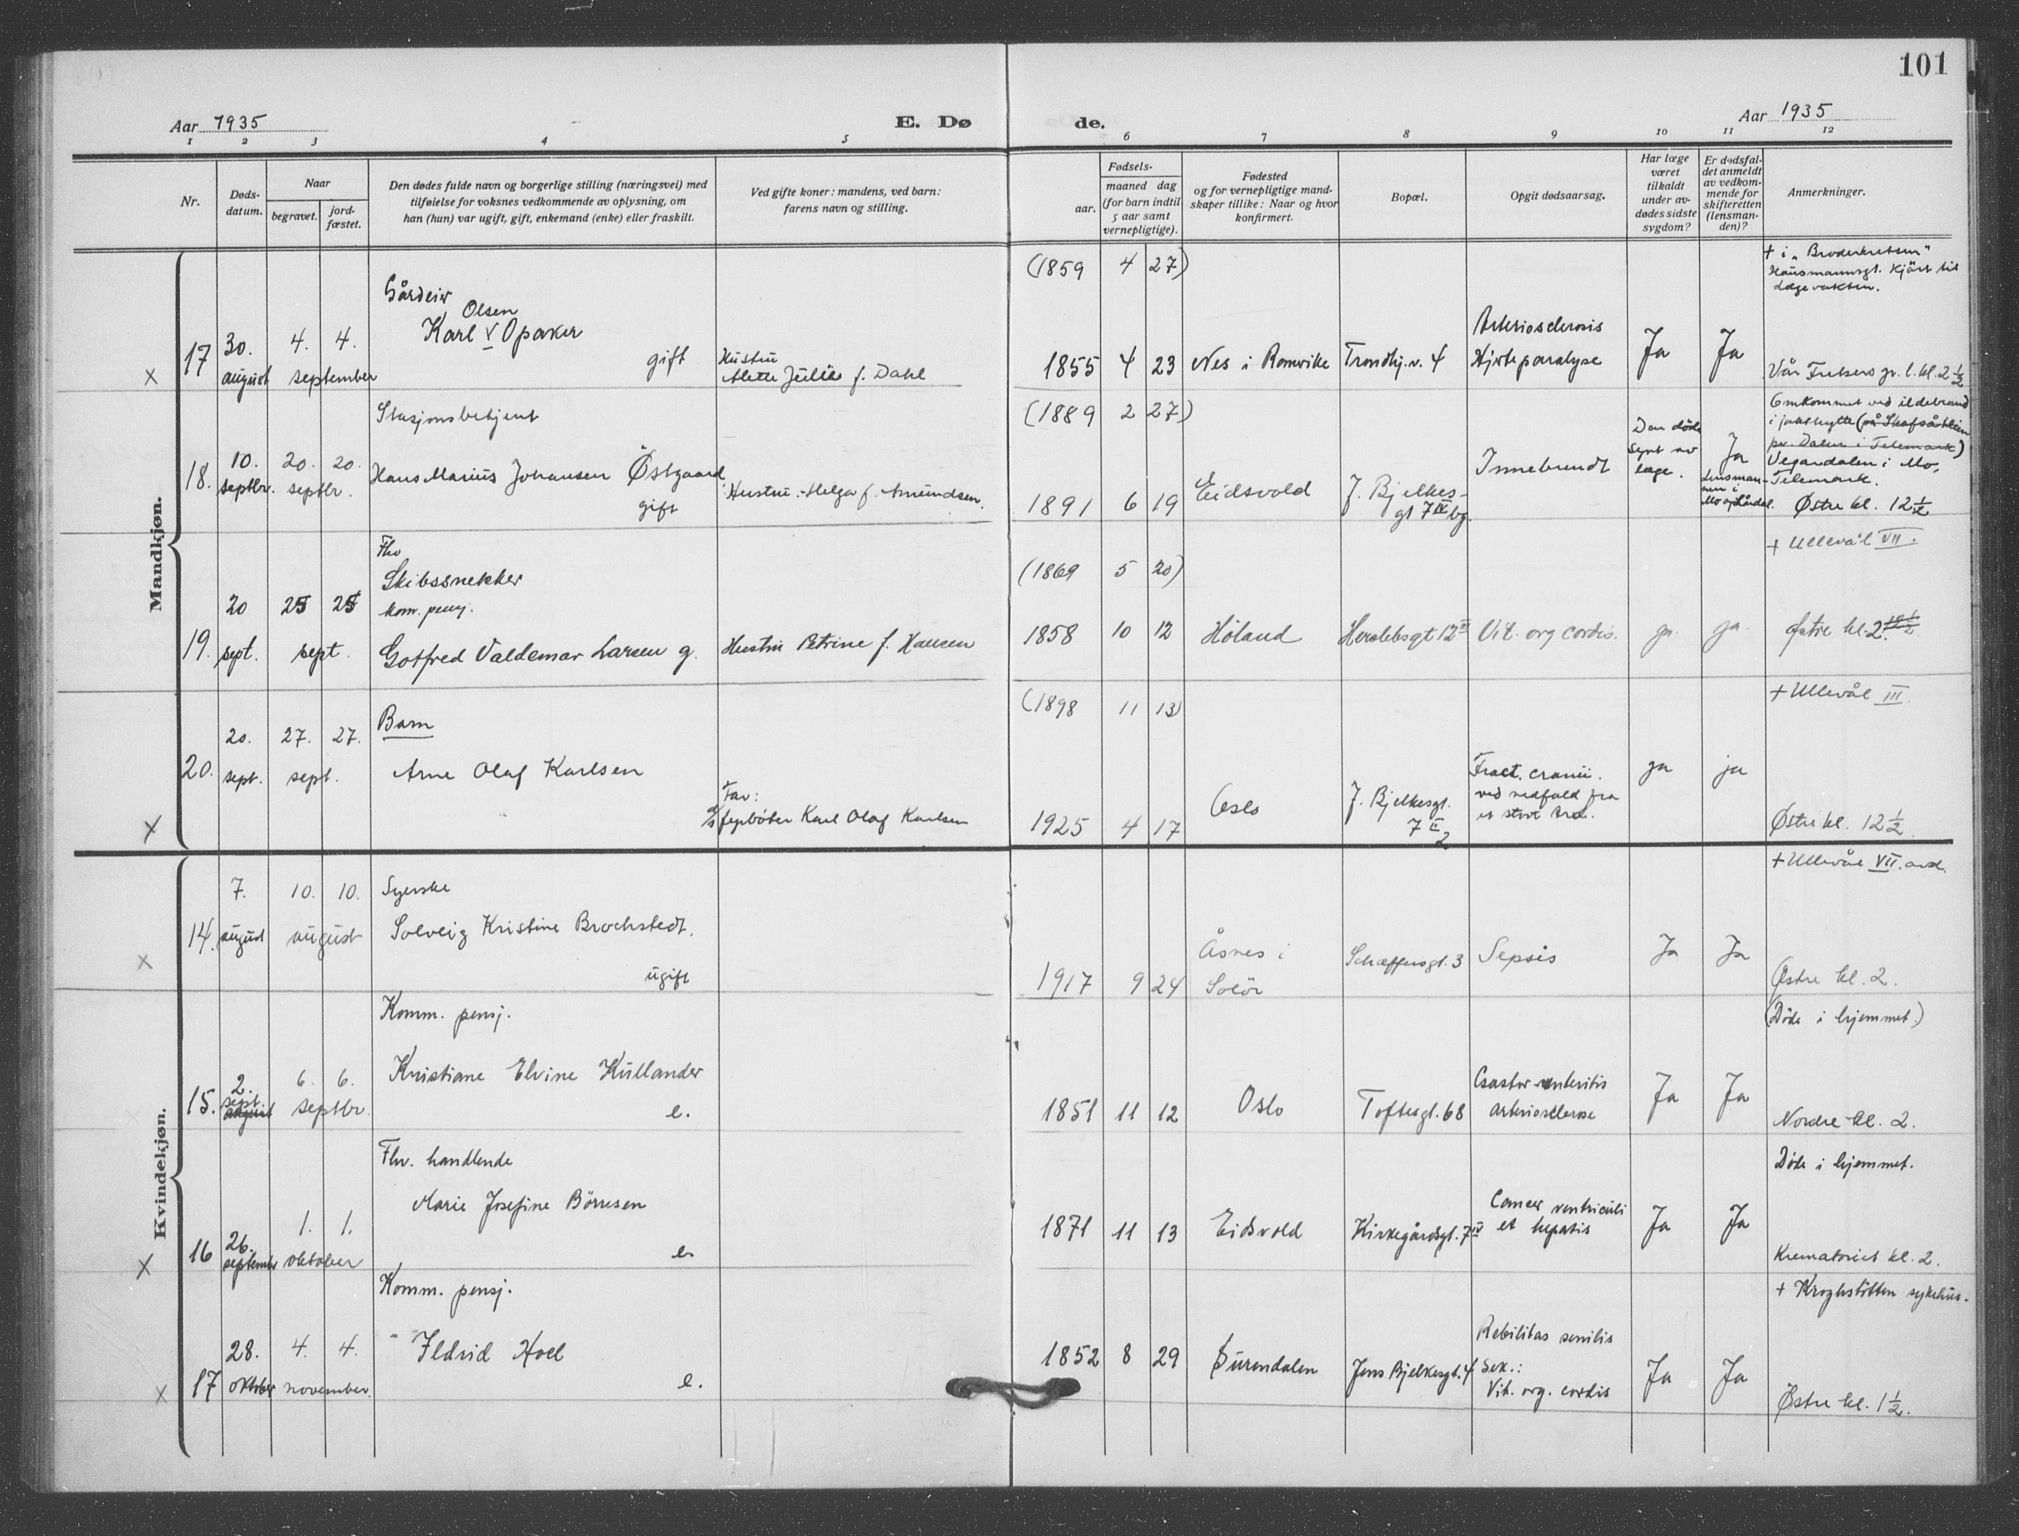 101
Aar 1935
E. Dø
de.
Aar 1935
1 2 3 4 5 6 7 8 9 10 11 12
Nr.
Døds-
datum.
Naar
begravet.
jord-
fæstet.
Den dødes fulde navn og borgerlige stilling (næringsvei) med
tilføielse for voksnes vedkommende av oplysning, om
han (hun) var ugift, gift, enkemand (enke) eller fraskilt.
Ved gifte koner: mandens, ved barn:
farens navn og stilling.
Fødsels-
aar.
maaned dag
(for barn indtil
5 aar samt
vernepligtige).
Fødested
og for vernepligtige mand-
skaper tillike: Naar og hvor
konfirmert.
Bopæl.
Opgit dødsaarsag.
Har læge
været
tilkaldt
under av-
dødes sidste
sygdom?
Er dødsfal-
det anmeldt
av vedkom-
mende for
skifteretten
(lensman-
den)?
Anmerkninger.
Mandkjøn.
17
30.
august
4. 4.
september
Gårdeier
Olsen
Karl V Opaker
gift
Hustru
Alette Julie f. Dahl
(1859 4 27)
1855 4 23
Nes i Romerike
Trondhj.v. 4
Arteriosclerosis
Hjerteparalyse
Ja
Ja
+ i „Broderkretsen"
Hausmannsgt. kjørt til
Lægevakten.
Vår Frelsers gr. l. kl. 2 1/2
18.
10.
septbr.
20. 20.
septbr.
Stasjonsbetjent
Hans Marius Johansen Östgaard
gift
Hustru: Helga f. Amundsen.
(1889 2 27)
1891 6 19
Eidsvold
J. Bjelkes-
gt 7 IV bg.
Innebrendt
Den døde
synt av
læge.
Ja
Lensman-
nen i
Mo og Lårdal.
Omkommet ved ildebrand
i jakthytte (på Skafsåheien
pr. Dalen i Telemark)
Vegardalen i Mo,
Telemark.
Østre kl. 12 1/2
19.
20
sept.
25 25
sept.
Fhv
Skibssnekker
kom. pensj.
Gotfred Valdemar Larsen g.
Hustru Petrine f. Hansen
(1869 5 20)
1858 10 12
Høland
Herslebsgt 12 III
Vit. org cordis.
ja.
ja.
+ Ullevål VII.
Østre kl. 2.
20.
20.
sept.
27. 27.
sept.
Barn
Arne Olaf Karlsen
Far:
Karl Olaf Karlsen
(1898 11 13)
1925 4 17
Oslo
J. Bjelkesgt.
7 II
2
Fract. cranii.
ved nedfald fra
et stort træ.
ja
ja
+ Ullevål III
Østre kl. 12 1/2
Kvindekjøn.
14.
7.
august
10. 10.
august
Syerske
Solveig Kristine Brochstedt.
ugift
1917 9 24
Åsnes i
Solör
Schæffersgt. 3
Sepsis
Ja
Ja
+ Ullevål VII. avd.
Østre kl. 2.
15.
2.
sept.
august
6. 6.
septbr.
Komm. pensj.
Kristiane Elvine Kullander
e.
1851 11 12
Oslo
Toftesgt. 68
arteriosclerose
Ja
Ja
(Døde i hjemmet.)
Nordre kl. 2.
16
26.
september
1. 1.
oktober
Fhv. handlende
Marie Josefine Börresen
e.
1871 11 13
Eidsvold
Kirkegårdsgt. 7 IV
Cancer ventriculi
et hepatis
Ja
Ja
Døde i hjemmet.
Krematoriet kl. 2.
17
28.
oktober
4. 4.
november.
Komm. pensj.
Ildrid Hoel
e.
1852 8 29
Surendalen
Jens Bjelkesgt. 4
Debilitas senilis
Sek.:
Vit. org. cordis
Ja
Ja
+ Kroghstötten sykehus.
Østre kl. 1 1/2.